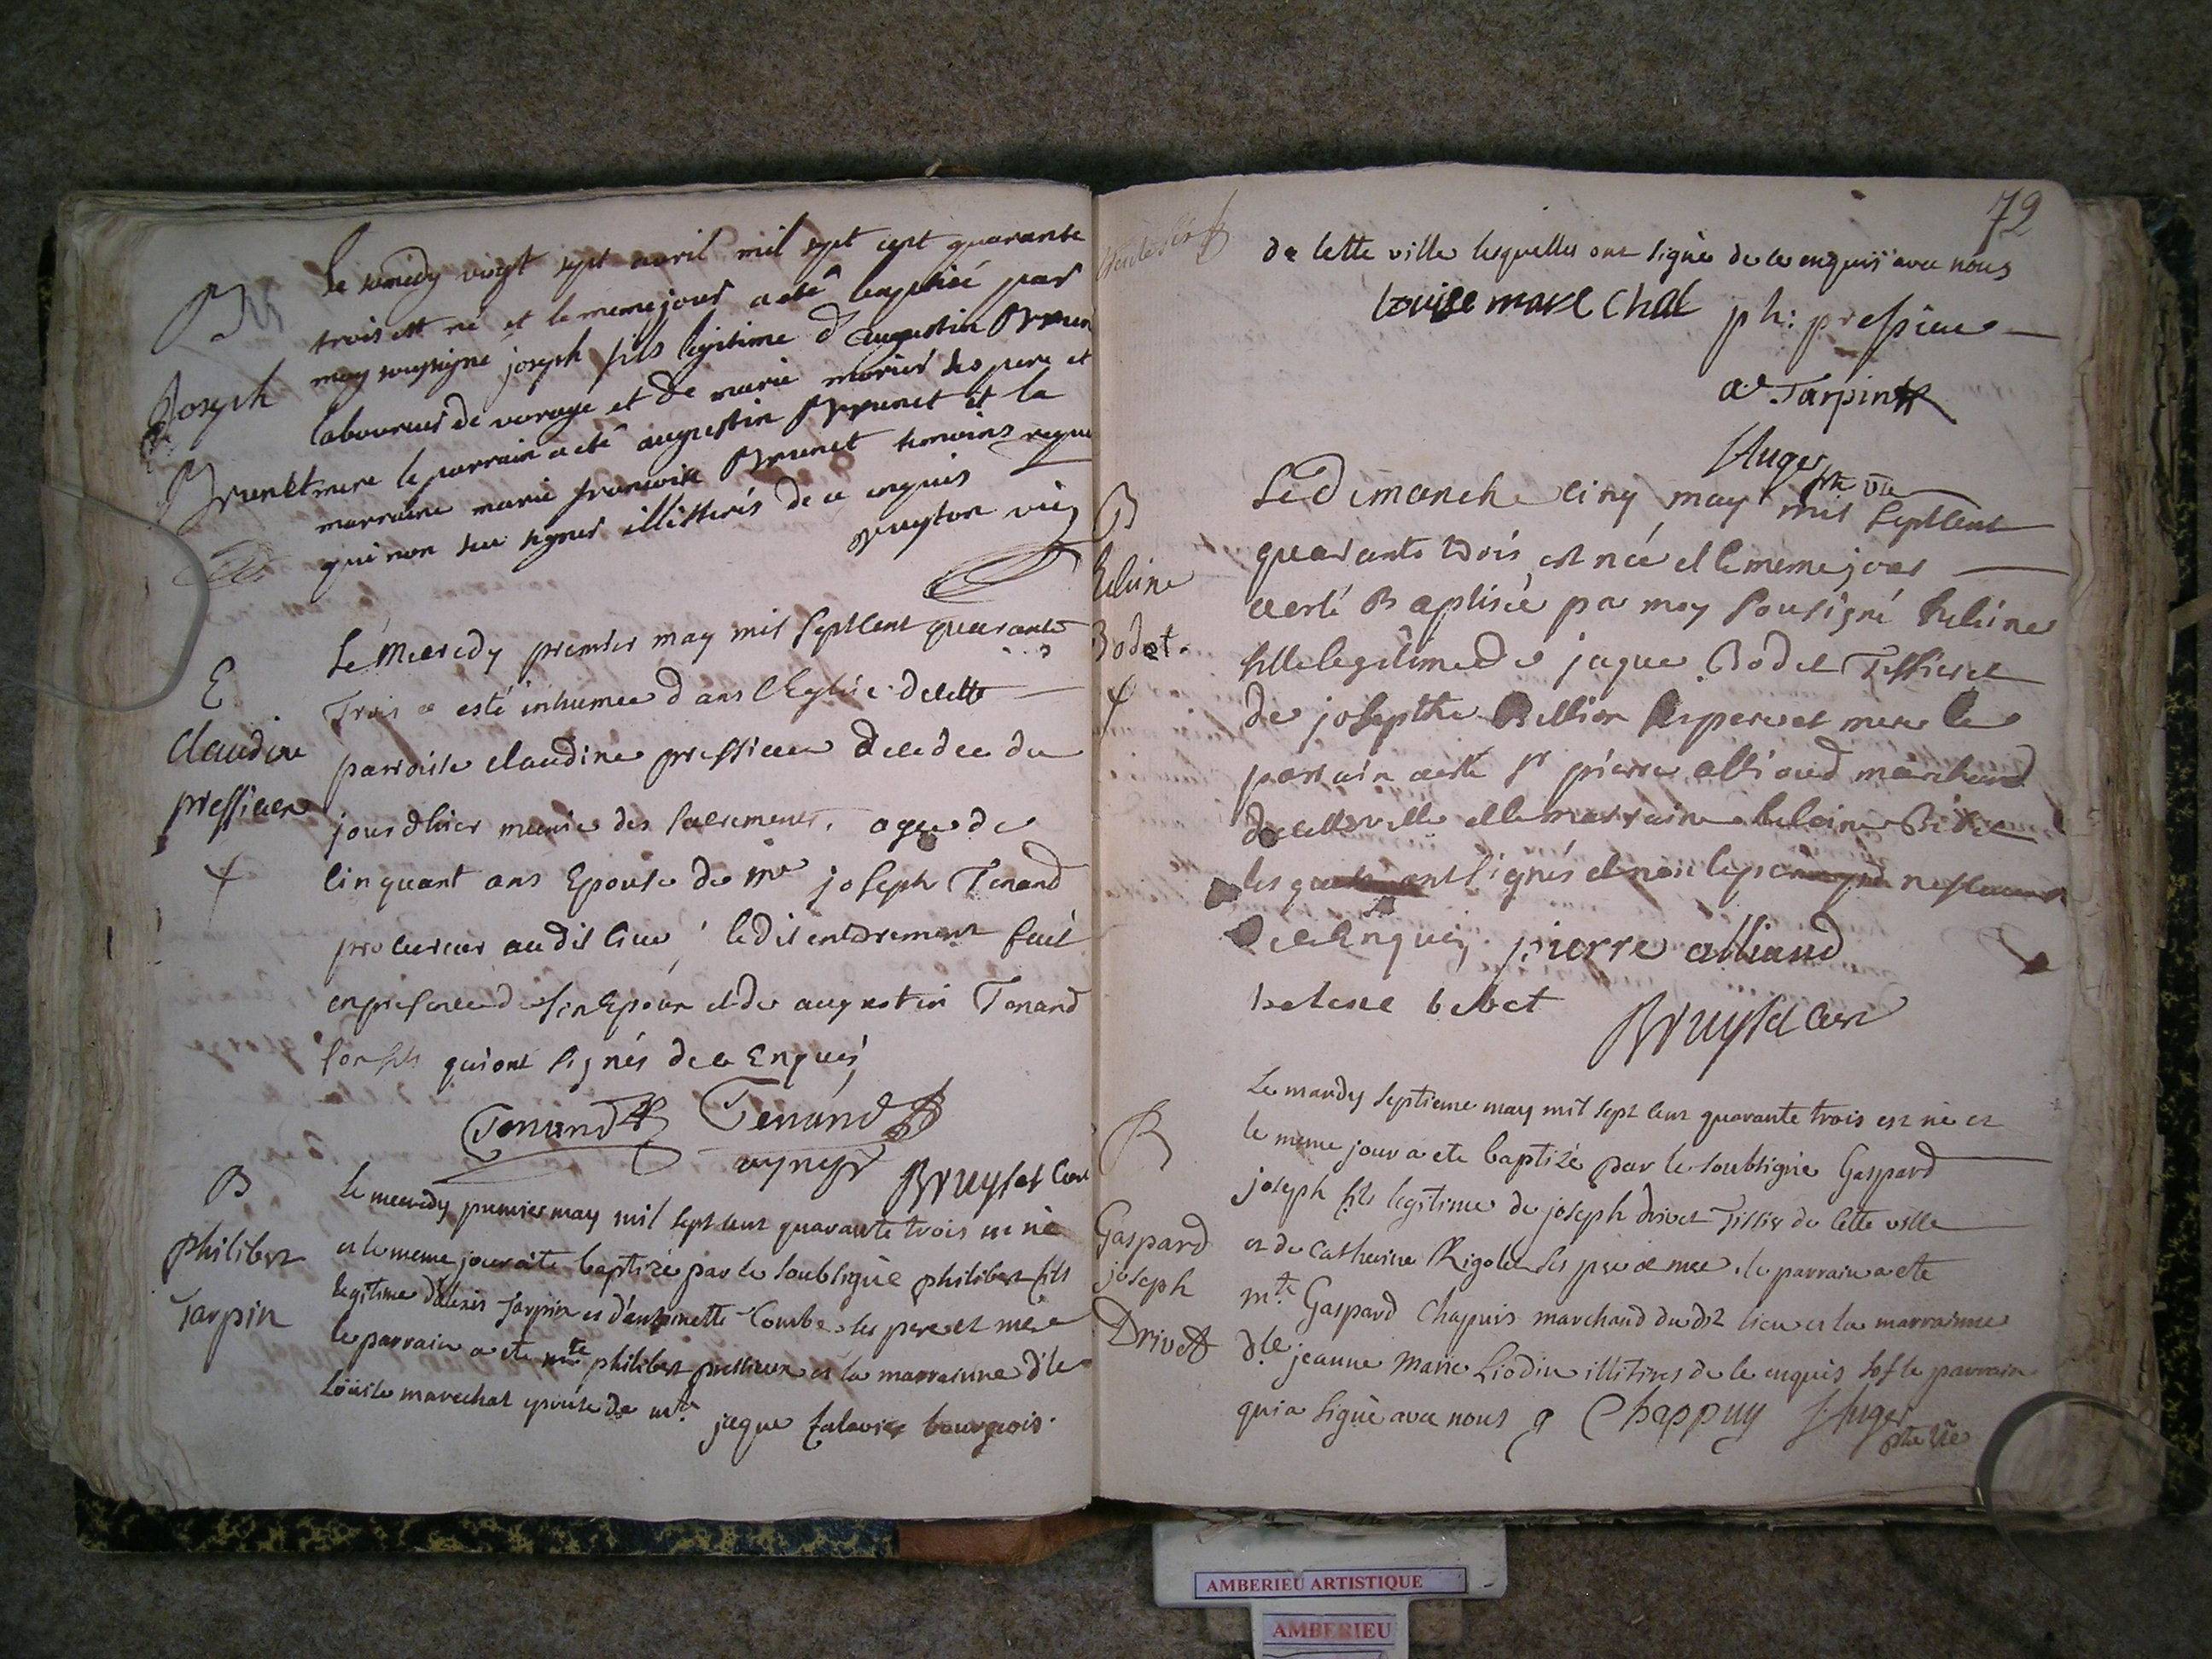 B
Joseph
Brunet
Le samedy vingt sept avril mil sept cent quarante
trois est né et le meme jour a eté baptisé par
moy soussigné joseph fils legitime d'augustin Brunet
laboureur de varage et de marie morier ses pere et
mere le parrain a eté augustin Brunet et la
marraine marie francoise Brunet temoins requis
qui n'on sçu signer illitterés de ce enquis
E
Claudine
pressieux
Le Mercredy premier may mil sept Cent quarante
Trois a esté inhumée dans l'Eglise de cette
parroisse claudine pressieux decedee du
jour dhier munie des sacrements. agee de
Cinquant ans Epouse de me joseph Tenand
procureur audit lieu, ledit enterrement fait
en presence de son Epoux et de augustin Tenand
son fils qui ont signés de ce Enquis
Tenand Tenand
Bruyset Curé
B
philibert
Tarpin
le mercredy premier may mil sept cent quarante trois est né
et le meme jour a ete baptizé par le soubsigné philibert fils
legitime d'alexis Tarpin et d'antoinette Combe ses pere et mere
le parrain a ete mte philibert pressieux et la marrainne dle
Loüise marechal epouse de mte jaque Calavier bourgeois.
72
de cette ville lesquelles ont signé de ce enquis avec nous
Louise mare Chal ph: pressieux
a. Tarpin
Auger
ptre vre
B
heleine
Bodet.
Le Dimanche cinq may mil sept Cent
quarante trois est née et le meme jour
a esté Baptisée par moy sousigné heleine
fille legitime de jaque Bodet Tissier et
de josepthe Bellion ses pere et mere le
parrain a esté sr pierre alliaud marchand
de cette ville et la marraine heleine
de ce Enquis pierre alliaud
helene bebet
Bruyset Curé
B
Gaspard
joseph
Drivet
Le mardy septieme may mil sept cent quarante trois est né et
le meme jour a ete baptizé par le soubsigné Gaspard
joseph fils legitime de joseph drivet Tissier de cette ville
et de Catherine Rigolet ses pere et mere, le parrain a ete
mte Gaspard Chapuis marchand dudit lieu et la marrainne
dle jeanne Marie Liodin illitires de ce enquis sof le parrain
qui a signé avec nous g Chappuy Auger
ptre vre
AMBERIEU ARTISTIQUE
AMBERIEU